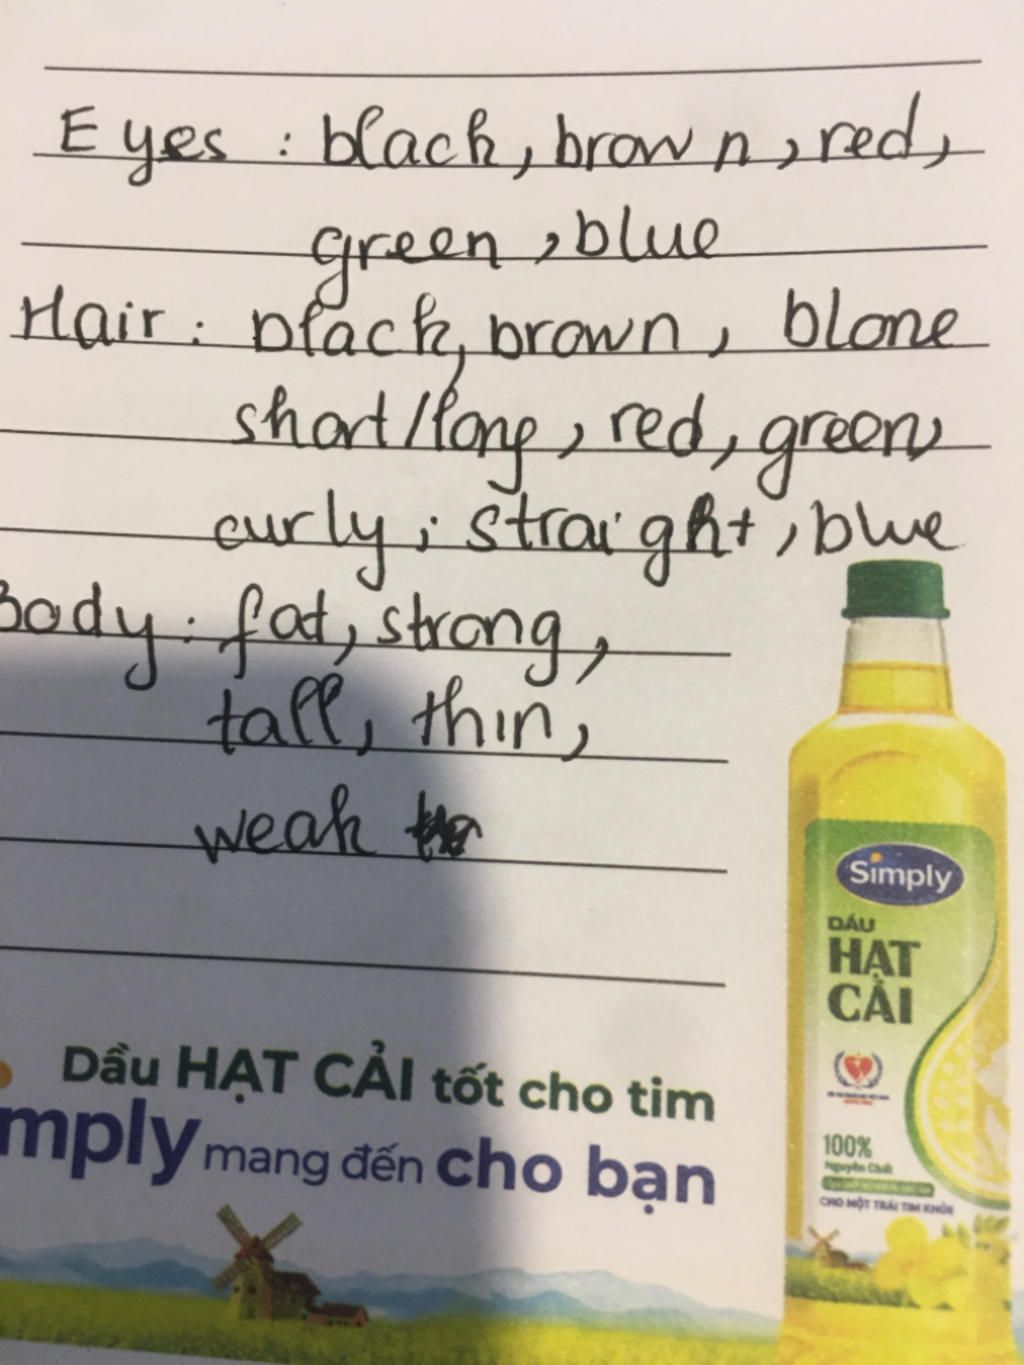 Eyes : black, brown, red,
green, blue
Hair : black, brown, blone
short/long, red, green,
curly ; straight, blue
Body : fat, strong,
tall, thin,
weak
Simply
DẦU
HẠT
CẢI
100%
Nguyên Chất
CHO MỘT TRÁI TIM KHỎE
Dầu HẠT CẢI tốt cho tim
mply mang đến cho bạn